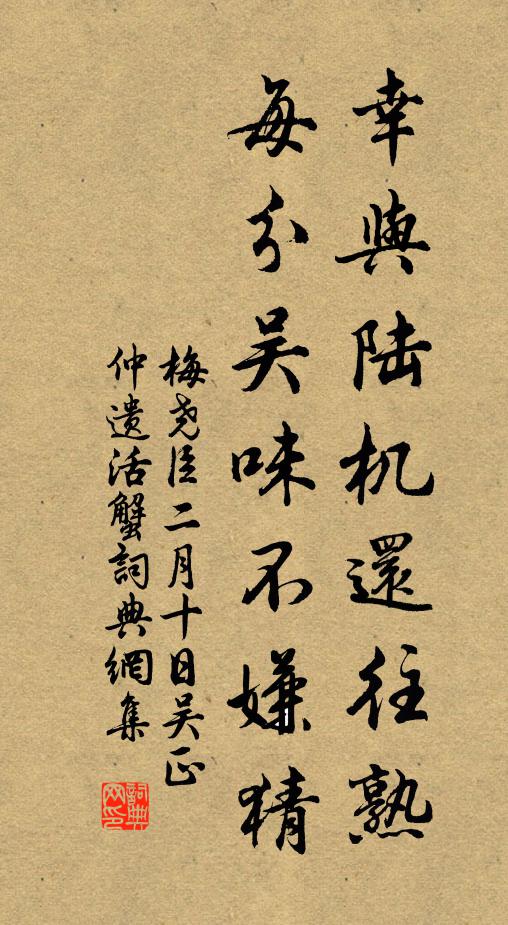 幸與陆机還往熟
每分吴味不嫌猜
梅尧臣二月十日吴正
仲遗活蟹詞典網集
詞典
网印